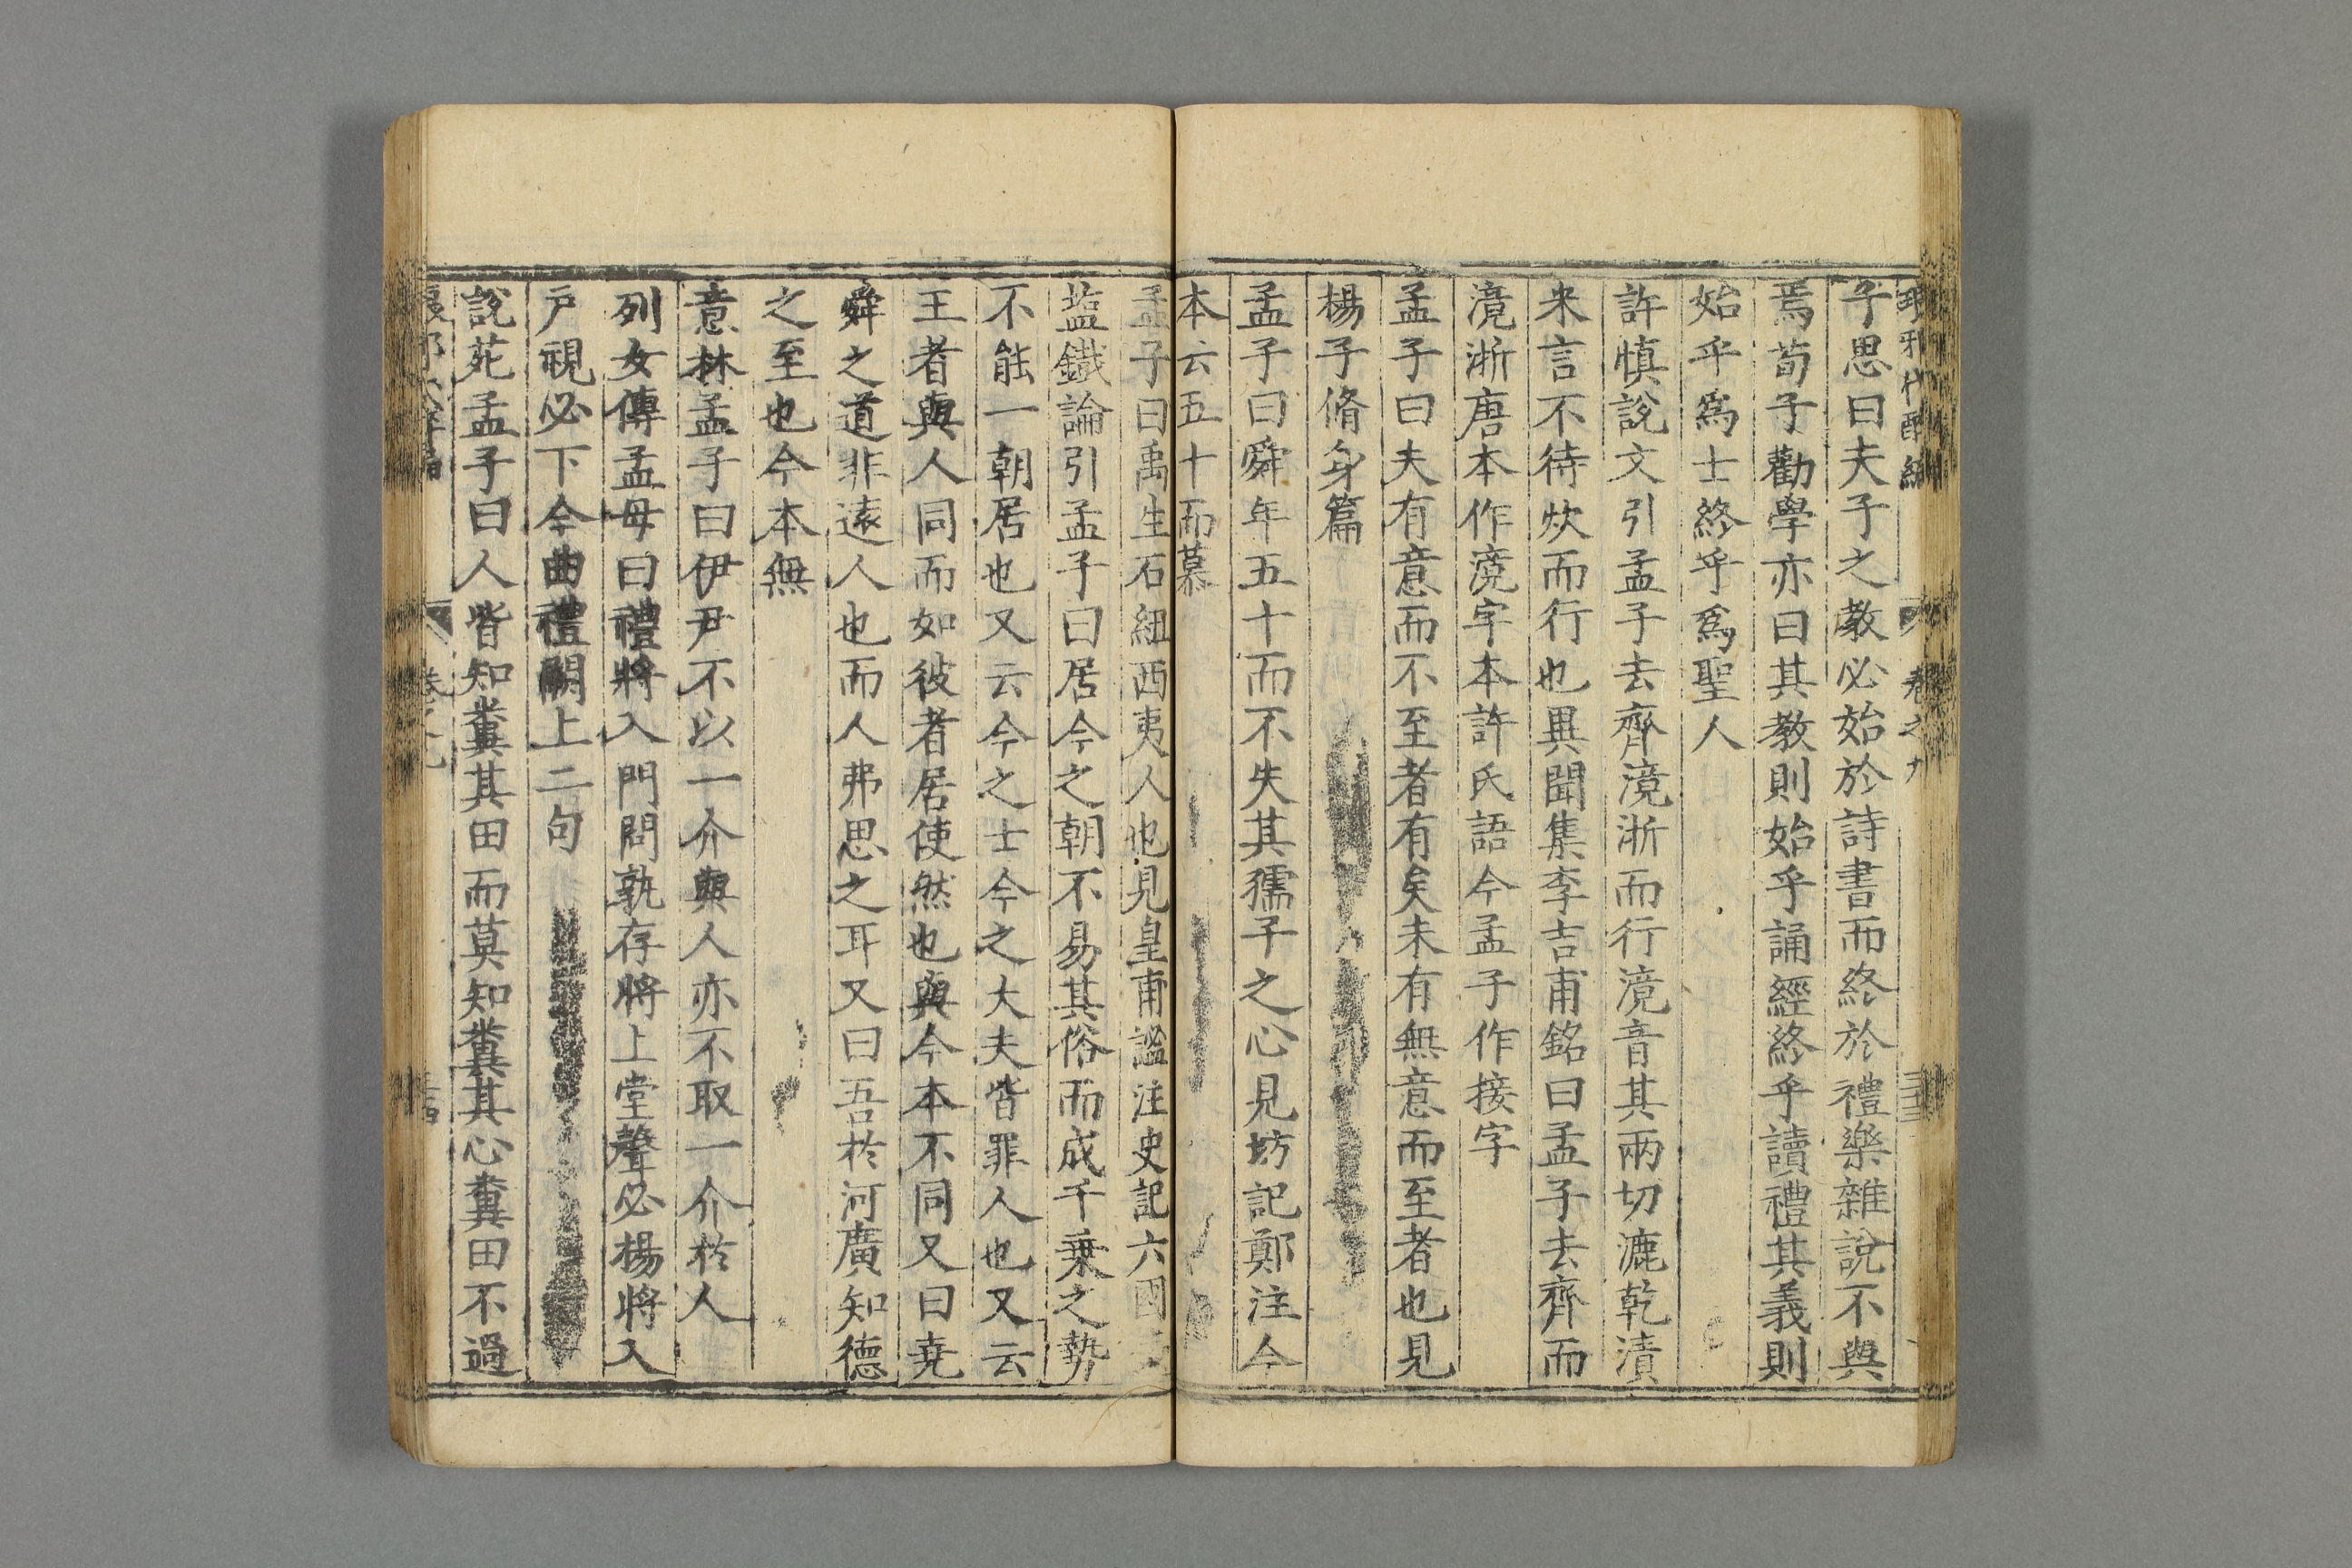 琅邪代醉編 卷之九
子思曰夫子之教必始於詩書而終於禮樂雜說不與
焉荀子勸學亦曰其教則始乎誦經終乎讀禮其義則
始乎爲士終乎爲聖人
許慎說文引孟子去齊滰淅而行滰音其兩切漉乾漬
来言不待炊而行也異聞集李吉甫銘曰孟子去齊而
滰淅唐本作滰字本許氏語今孟子作接字
孟子曰夫有意而不至者有矣未有無意而至者也見
楊子脩身篇
孟子曰舜年五十而不失其孺子之心見坊記鄭注今
本云五十而慕
孟子曰禹生石紐西夷人也見皇甫謐注史記六國
盐鐵論引孟子曰居今之朝不易其俗而成千乗之勢
不能一朝居也又云今之士今之大夫皆罪人也又云
王者與人同而如彼者居使然也與今本不同又曰堯
舜之道非遠人也而人弗思之耳又曰吾於河廣知德
之至也今本無
意林孟子曰伊尹不以一介與人亦不取一介於人
列女傳孟母曰禮將入門問孰存將上堂聲必楊將入
户視必下今曲禮闕上二句
說苑孟子曰人皆知糞其田而莫知糞其心糞田不過
卷之九